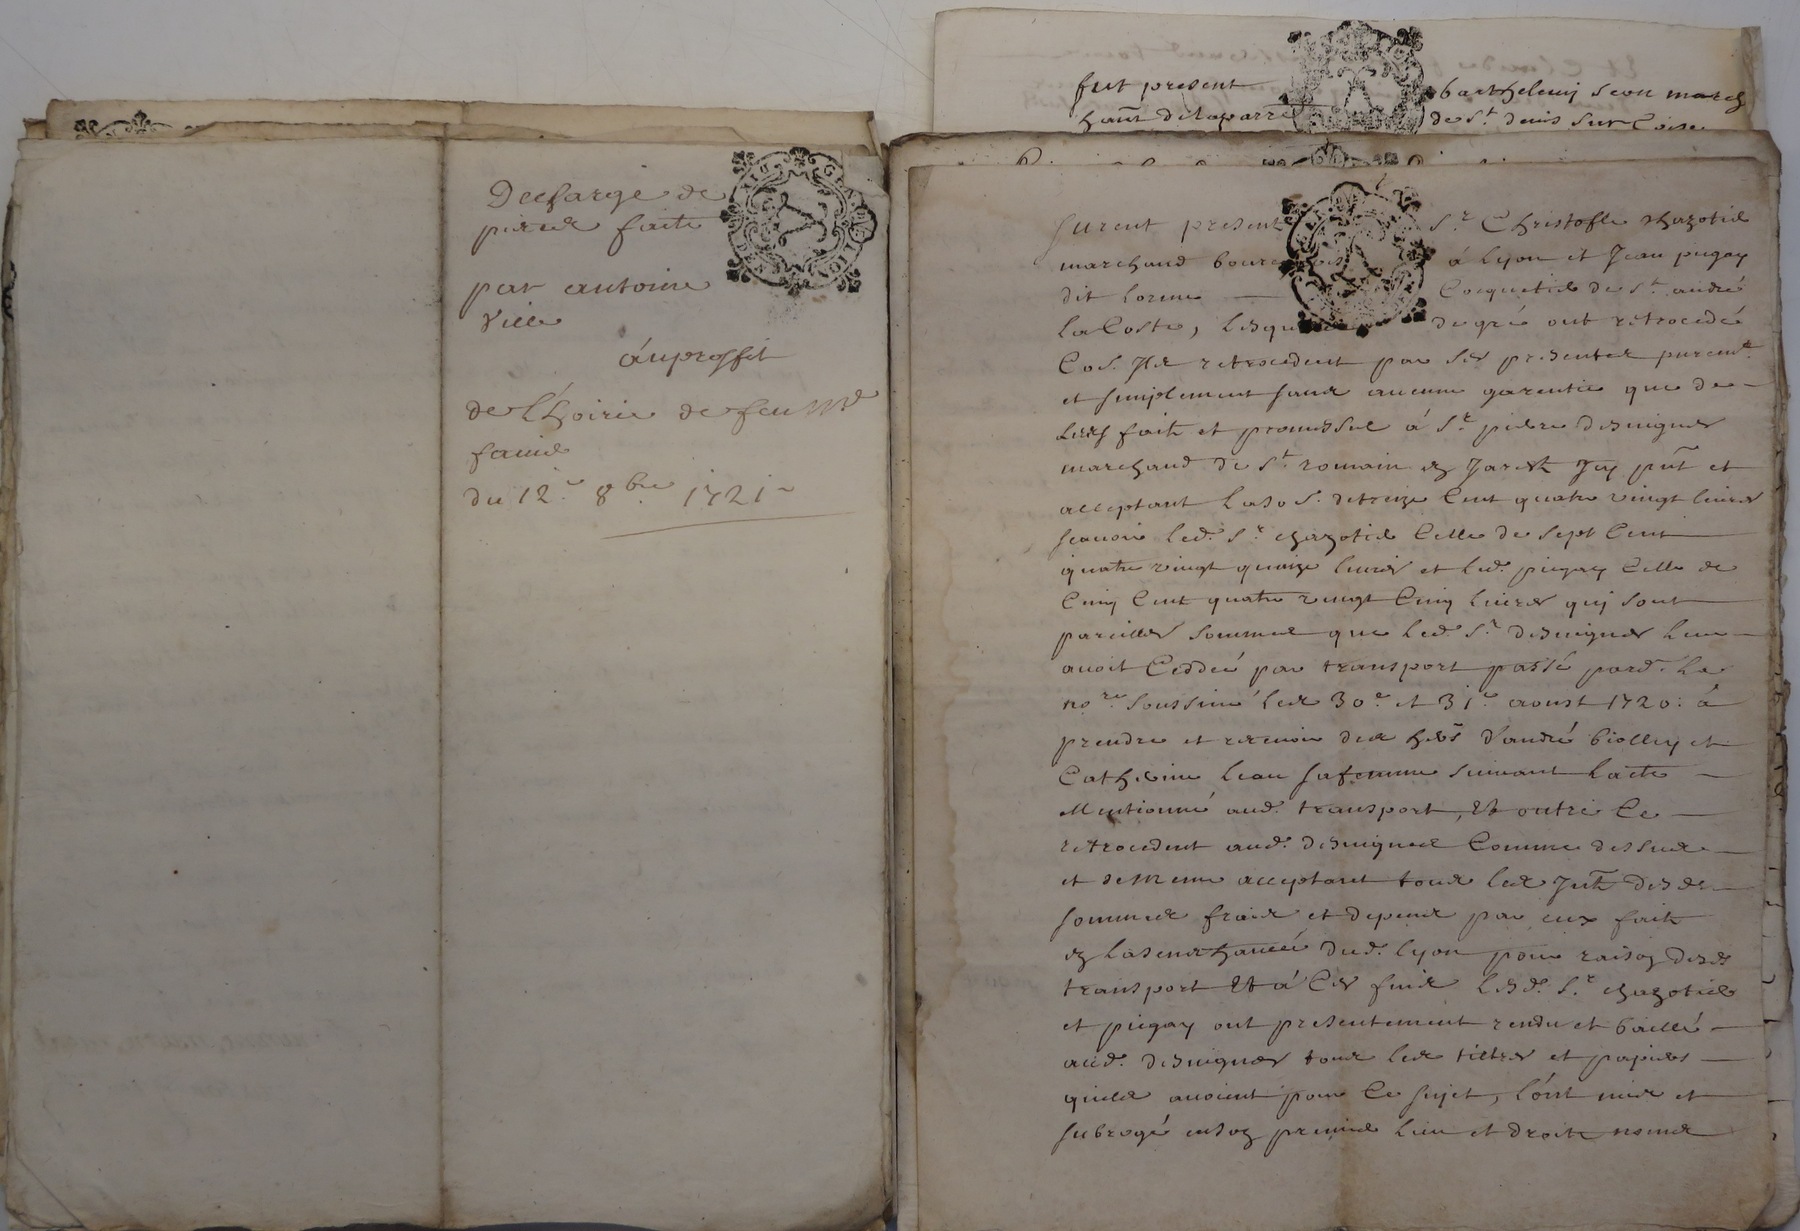 Descharge de
pieces faite
par antoine
Ville
áuproffit
de l'hoirie de feu Mre
faure
du 12.e 8bre 1721
fut present barthelemy seon march
hant de laparre de St. denis sur Coise
furent presents Sr. Christofle chazotte
marchand bourgeois á Lyon et Jean pugay
dit Lorme Cocquetier de St. andré
la Coste, lesquels de gré ont retrocedé
Co. s. Ils retrocedent par ses presentes puremt.
et simplement sans aucune garentie que de
leurs faits et promesses á Sr. pierre desvignes
marchand de St. romain ez Jarest Icy pnt et
acceptant la so S. de treize Cent quatre vingt livres
scavoir led. Sr. chazotte Celle de sept Cent
quatre vingt quinze livres et led. pugay Celle de
Cinq Cent quatre vingt Cinq livres qui sont
pareilles sommes que led. Sr. desvignes leur
avoit Ceddé par transport passé pard. le
nore. soussiné les 30.e et 31.e aoust 1720: á
prendre et recevoir des hers d'andré biolley et
Catherine seon sa femme suivant l'acte
Mentionné aud. transport, Et outre Ce
retrocedent aud. desvignes Comme dessus
et de meme acceptant tous les Intts desdes
sommes frais et depens par eux faits
ez la senechaucée dud. lyon pour raison desds
transport Et á Ces fins lesd. Sr. chazotte
et pugay ont presentement rendu et baillé
aud. desvignes tous les tiltres et papiers
quils avoient pour Ce sujet, l'ont mis et
subrogé en son premier lieu et droits noms